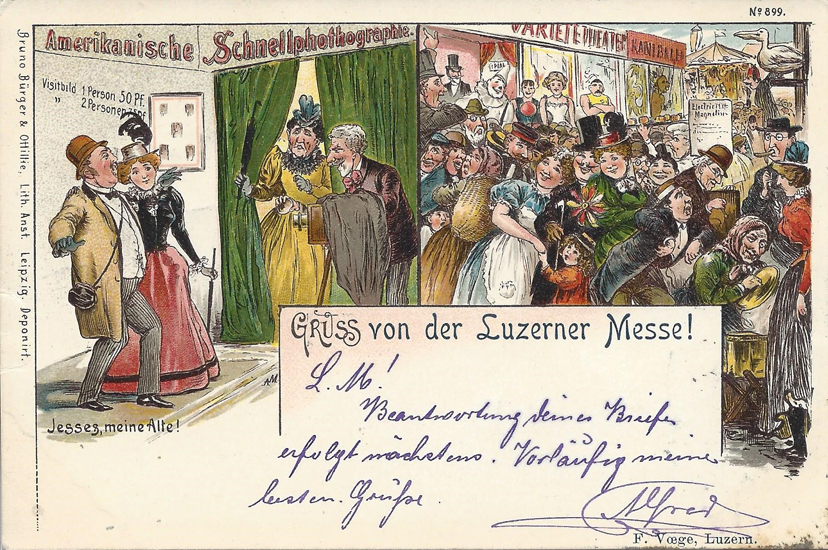 Nº 899.
Amerikanische Schnellphothographie.
Visitbild 1 Person 50 PF.
" 2 Personen 75 PF
VARIETETHEATER
KANIBALE
Electricität
Magnetius
Bruno Bürger & Ottillie, Lith. Anst. Leipzig. Deponirt.
Jesses, meine Alte!
Gruss von der Luzerner Messe!
L. M!
Beantwortung deines Briefes
erfolgt nächstens. Vorläufig meine
besten Grüße.
Alfred
F. Vœge, Luzern.